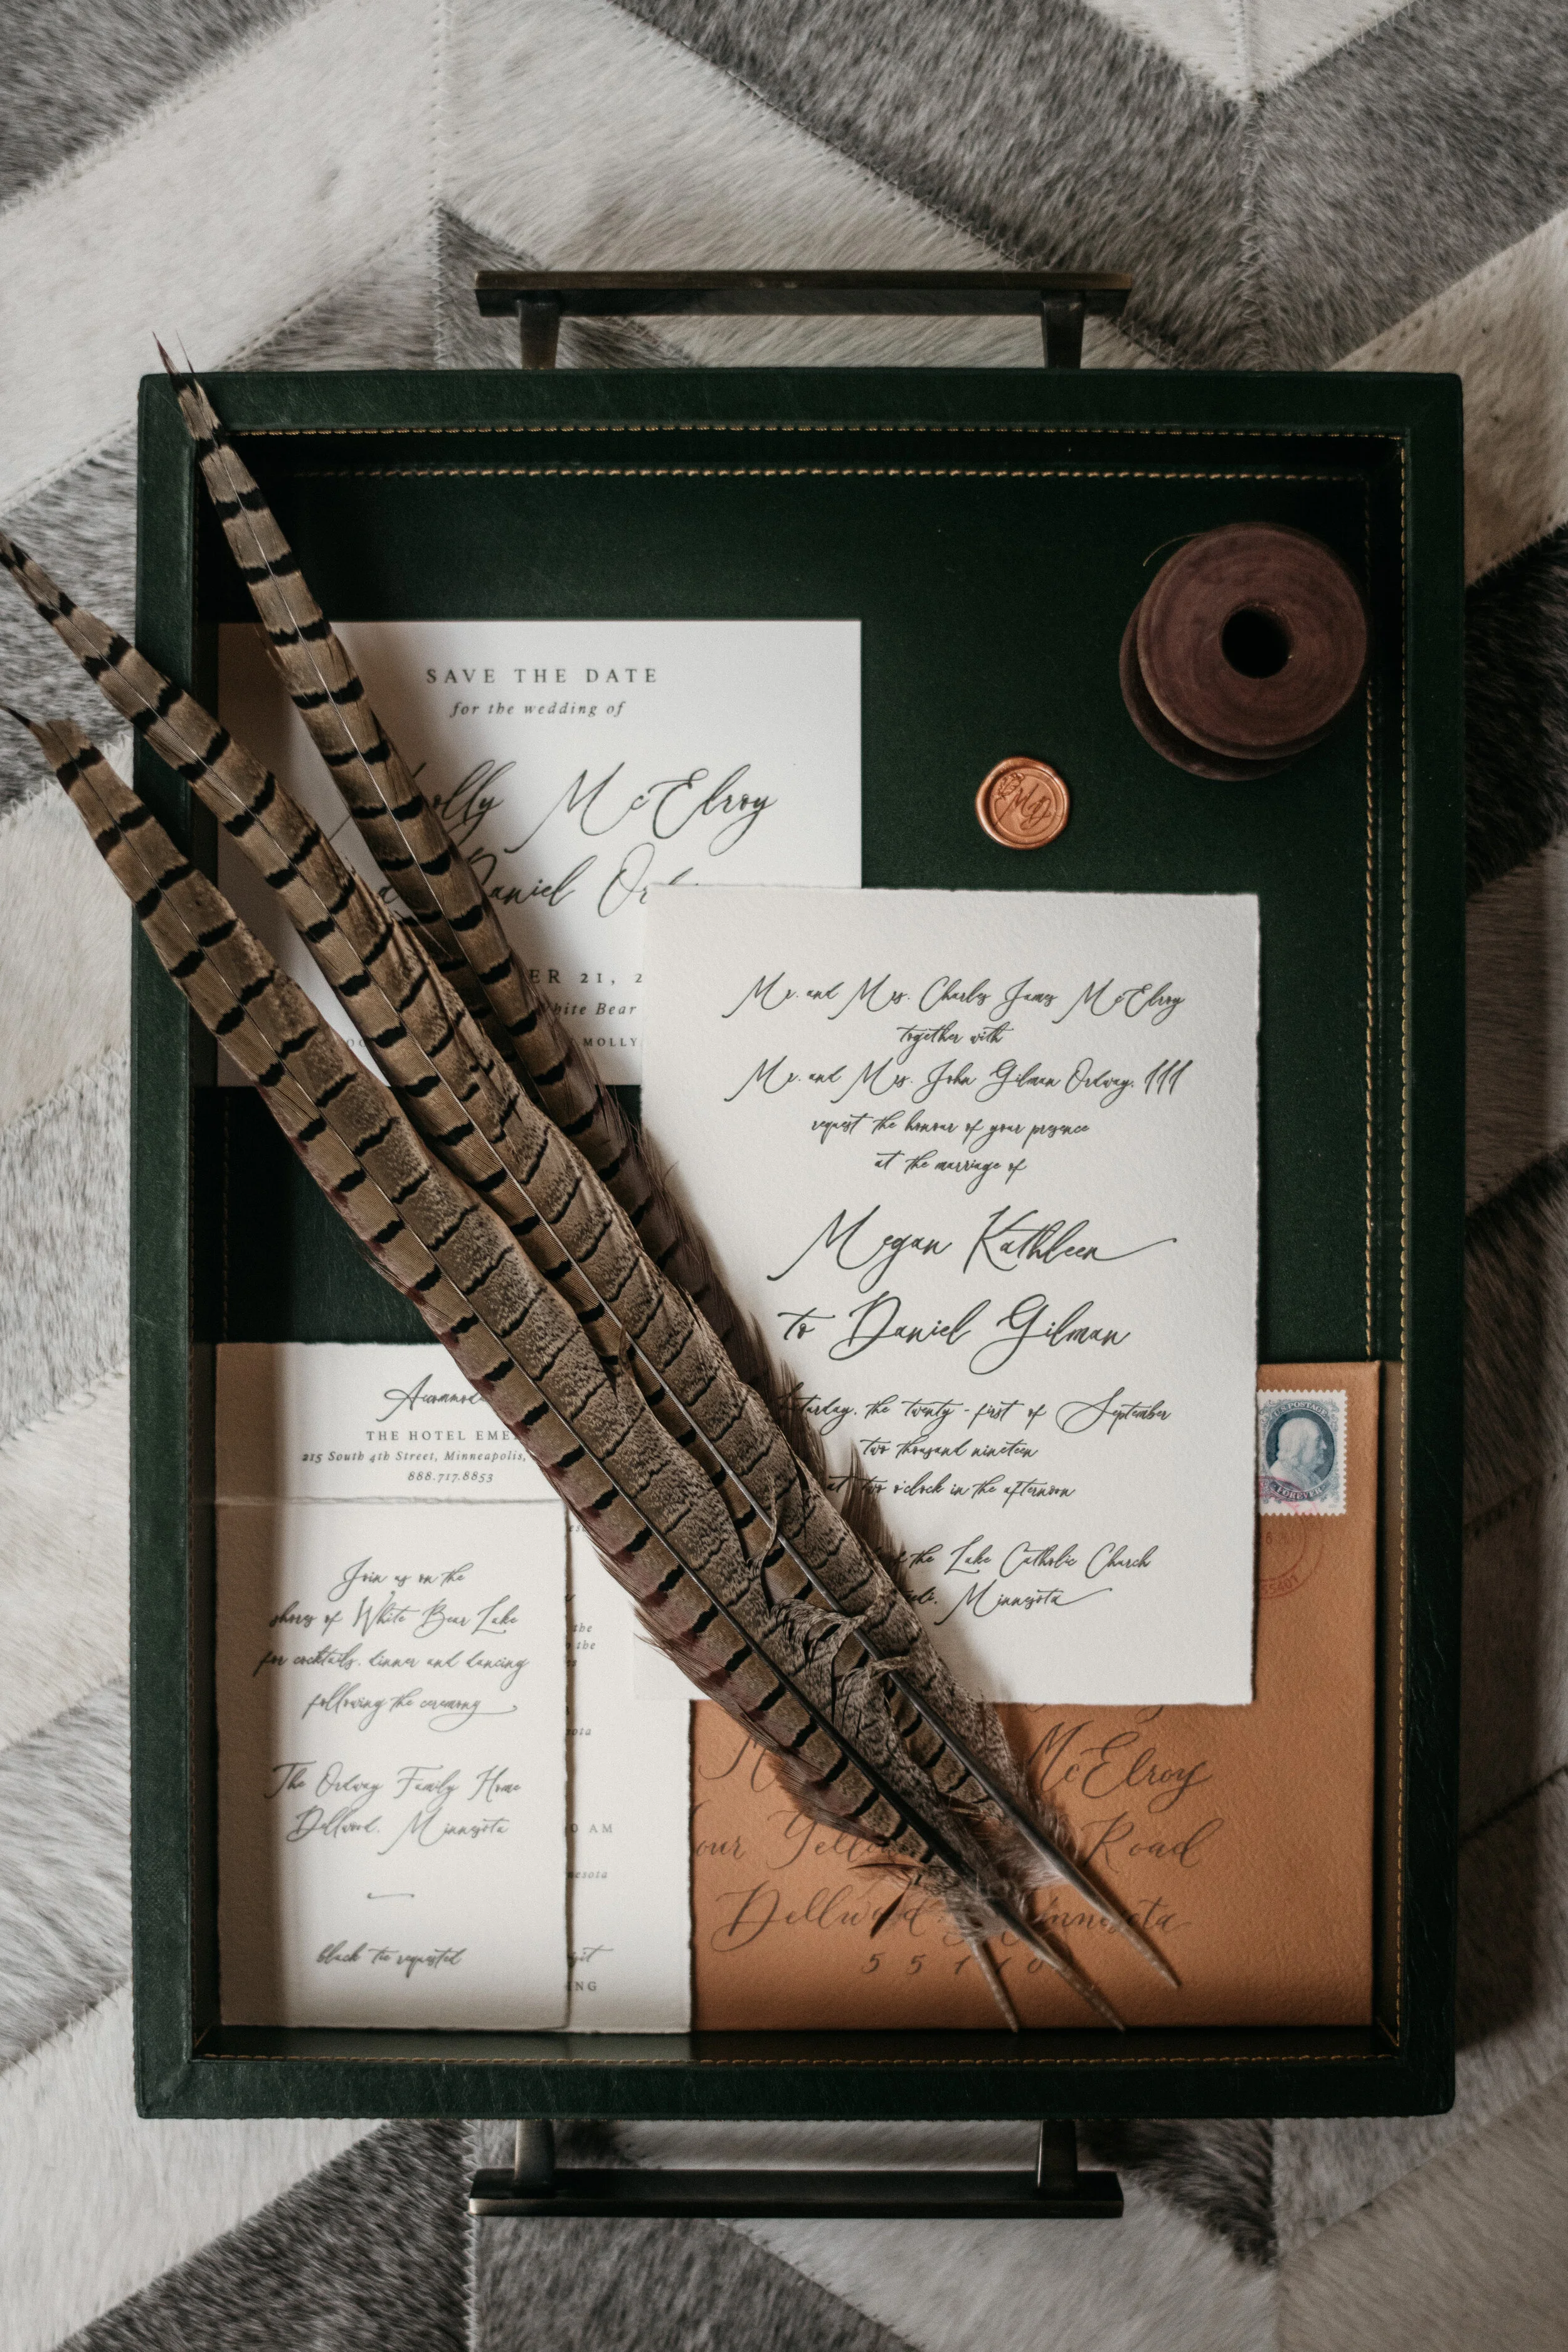 SAVE THE DATE
for the wedding of
olly McElroy
Daniel
ER 21, 2
White Bear
MOLLY
MD
Mr. and Mrs. Charles James McElroy
together with
Mr. and Mrs. John Gilman Ordway, III
request the honour of your presence
at the marriage of
Megan Kathleen
to Daniel Gilman
Saturday, the twenty-first of September
two thousand nineteen
at two o'clock in the afternoon
of the Lake Catholic Church
Minnesota
THE HOTEL EME
215 South 4th Street, Minneapolis,
888.717.8853
Join us on the
shores of White Bear Lake
for cocktails, dinner and dancing
following the ceremony
The Ordway Family Home
Dellwood, Minnesota
black tie requested
the
the
0 AM
NG
U.S. POSTAGE
FOREVER
55401
McElroy
Road
Dellwood, Minnesota